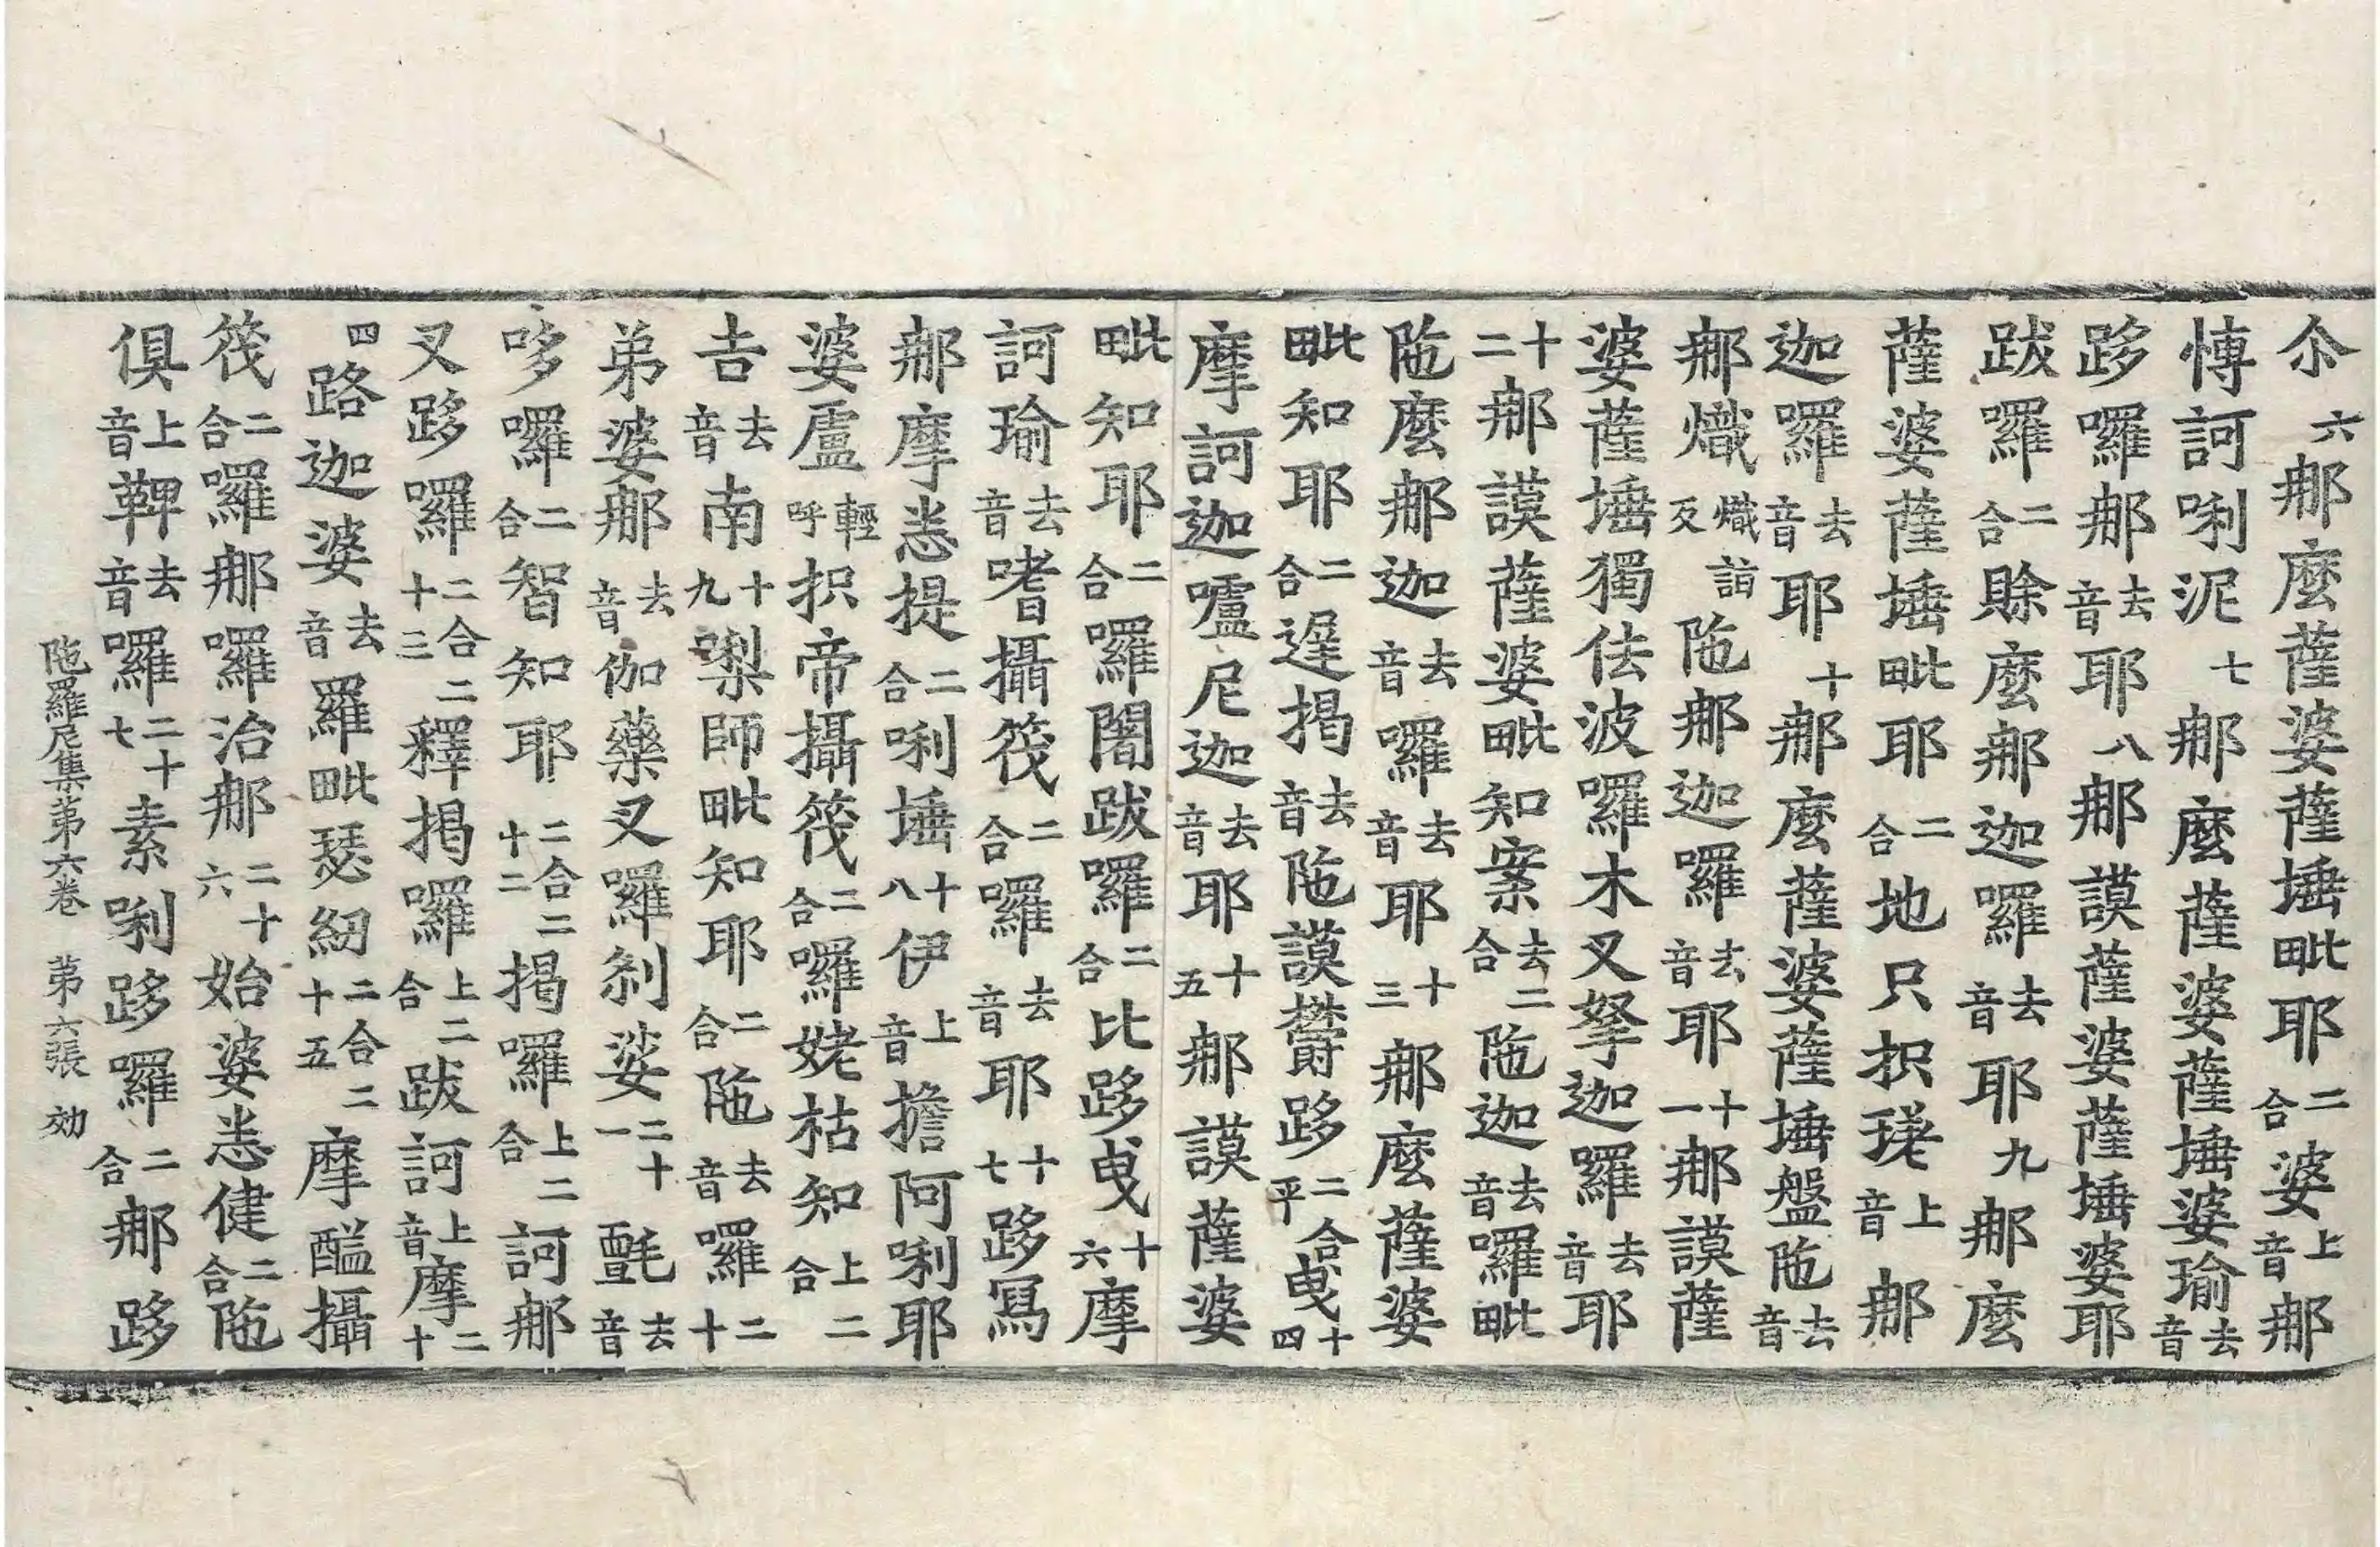 尒六那麽薩婆薩埵毗耶二合婆上音那
愽訶唎泥七那麽薩婆薩埵婆瑜去音
跢囉那去音耶八那謨薩婆薩埵婆耶
跋囉二合賒麽那迦囉去音耶九那麽
薩婆薩埵毗耶二合地只抧瑳上音那
迦囉去音耶十那麽薩婆薩埵盤陁去音
那熾熾詣反陁那迦囉去音耶十一那謨薩
婆薩埵獨佉波囉木叉拏迦羅去音耶
十二那謨薩婆毗知案去二合陁迦去音囉毗
陁麽那迦去音囉去音耶十三那麽薩婆
毗知耶二合遟揭去音陁謨欝跢二合平曳十四
摩訶迦嚧尼迦去音耶十五那謨薩婆
毗知耶二合囉闍跋囉二合比跢曳十六摩
訶瑜去音嗜攝筏二合囉去音耶十七跢冩
那摩悉提二合唎埵十八伊上音擔阿唎耶
婆盧輕呼抧帝攝筏二合囉姥枯知上二合
吉去音南十九㘑師毗知耶二合陁去音囉二十
弟婆那去音伽藥叉囉剎娑二十一氎去音
哆囉二合智知耶二合二十二揭囉上二合訶那
叉跢囉二合二十三釋揭囉上二合跋訶上音摩二十
四路迦婆去音羅毗瑟紉二合二十五摩醯攝
筏二合囉那囉治那二十六始婆悉健二合陁
俱上音鞞去音囉二十七素唎跢囉二合那跢
陁羅尼集苐六卷 苐六張 効